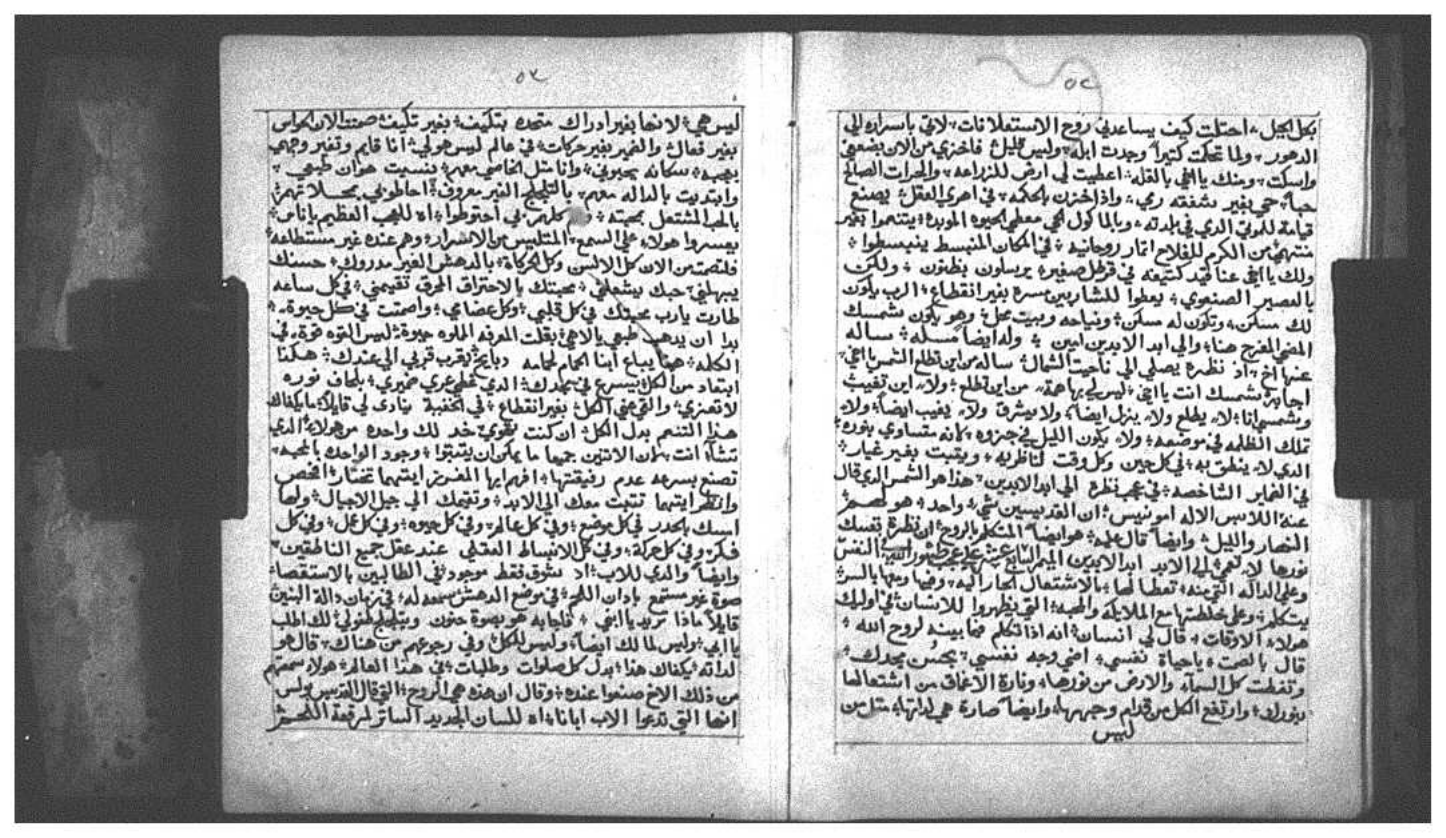 بكل الجبل، احتلت كيف يساعدني روح الاستعلانات، لاتي باسراره الى
الدهور، ولما تحكمت كثيراً وجدت ابله، وليس قليل، فاخزي من الان بضعفي
واسكت، ومنك يااخي بالفعله، اعطيت لي ارض للزراعه، والخيرات الصالح
حباً، حتي بغير شفقه رمي، واذا خزن بالحكمه، في اهري العقل، يصنع
قيامة للموتي الذي في بلدته، وبالماكول لكي معطي الحيوه الموبده، يتنعموا بغير
منتهي، من الكرم للفلاح اثمار روحانيه، في المكان المنبسط ينبسطوا
ولك يااخي عناقيد كثيفه في قرطل صغير، يرسلون بظنون، ولكن
بالعصير الصنعوي، يعطوا للشاربين مسرة بغير انقطاع، الرب يكون
لك مسكن، وتكون له مسكن، ونياحه وبيت محل، وهو يكون شمسك
المضي المفرح هنا، والي ابد الابدين امين، وله ايضاً مسله، ساله
عنها اخ، اذ نظره يصلي الي ناحيت الشمال، ساله من اين تطلع الشمس يااخي،
اجابه شمسك انت يااخي، ليس لي بها همة، من اين تطلع، ولا، اين تغيب
وشمسي انا، لا، يطلع ولا، ينزل ايضاً، ولا يشرق ولا، يغيب ايضاً، ولا،
تملك الظلمه في موضعه، ولا، يكون الليل في جزوه، لانه متساوي بنوره،
الذي لا، ينطق به، في كل حين وكل وقت لناظريه، ويتبت بغير غيار،
في الضماير الشاخصه، في عجب نظره الي ابد الابدين، هذا هو الشمس الذي قال
عنه، اللابس الاله امونيس، ان القديسين شي، واحد، هو لهم
النهار والليل، وايضاً قال عليه، هو ايضاً المتكلم بالروح، ان نظرة نفسك
نورها لا، تعمي، الي الابد ابد الابدين، الميمر التاسع عشر
وعلي الداله التي منه، تعطا لها، بالاشتعال الحار اليه، وفيها ومنها بالسر
يتكلم، وعلي خلطتها مع الملايكه والمحبه، التي يظهروا للانسان في اوليك
هولا، الاوقات، قال لي انسان، انه اذا تكلم فيما بينه لروح الله
قال بالصمت، ياحياة نفسي، اضي وجه نفسي، بحسن مجدك
وتغطت كل السماء والارض من نورها، ونارة الاعماق من اشتعالها
بنورك، وارتفع الكل من قدام وجهها، وايضاً صارة هي لذاتها، مثل من
ليس
ليس هي، لانها بغير ادراك متحده بتكيف، بغير تكيف، صمتت الان الحواس
بغير فعال، والضمير بغير حركات، في عالم ليس هولي، انا قايم وتغير وجهي
بعجبه، سكانه يحبوني، وانا مثل الخاصي معهم، ننسيت هوان طبعي
وابتديت بالداله معهم، بالتلجلج الغير معروف، احاطوني بمجلاتهم،
بالحب المشتعل بمحبته، كلهم بي احتوطوا، اه للعجب العظيم ياناس
بيسروا هولاء علي السمع، المتلبس من الانضرار، وهم عنده غير مستطاعه
فلتصمت من الان كل الالسن وكل الحركاة، بالدهش الغير مدروك، حسنك
يبهلني، حبك يشعلني، محبتك بالاحتراق المحرق تقيمني، في كل ساعه
طارت يارب محبتك في كل قلبي، وكل عضامي، واصمتت في كل حيوة
بدا ان يذهب طبعي يا الاهي، بقلت المعرفه الملوه حيوة، ليس القوه قوة، في
الكلمه، هفا يباع ابنا الحمام لحمامه وبايح، يقرب قربي الي عندك، هكذا
ابتعاد من الكل، بيسرع في مجدك، الذي غطي عري ضميري، بلحاف نوره
لا تعتري، والتي مني الكل، بغير انقطاع، في الخفيه ينادي لي قايلاً، ما يكفاك
هذا التنعم بدل الكل، ان كنت تقوي خد لك واحده من هولاء، الذي
تشا، انت، لان الاثنين جميعاً ما يمكن ان يتبتوا، وجود الواحده بالمحبه
تصنع بسرعه عدم رفيقتها، افهم ايها المفرز ايتهما تختار، افحص
وانظر ايتهما تتبت معك الي الابد، وتقيمك الي جيل الاجيال، ولها
امسك بالحذر في كل موضع، وفي كل عالم، وفي كل حيوه، وفي كل عمل، وفي كل
فكر، وفي كل حركة، وفي كل الانبساط العقلي عند عقل جميع الناطقين
وايضاً والذي للاب، اذ بشوق فقط موجود، في الطالبين بالاستقصا
صوة غير مستمع باذان اللحم، في موضع الدهش، سمعه له، في زمان، القاه النبيه
قايلاً ماذا تريد ياابني، فاجابه هو بصوة حنون وبتلجلج طفولي، لك اطلب
ياابي، وليس لما لك ايضاً، وليس للكل، وفي رجوعهم من هناك، قال هو
لذاته، يكفاك هذا، بدل كل صلوات وطلبات، في هذا العالم، هولا، سمعتهم
من ذلك الاخ صنعوا عنده، وقال ان هذه هي الروح، التي قال القديس بولس
انها التي تدعوا الاب ابانا، اه للسان الجديد الساتر لمرقعة اللحم